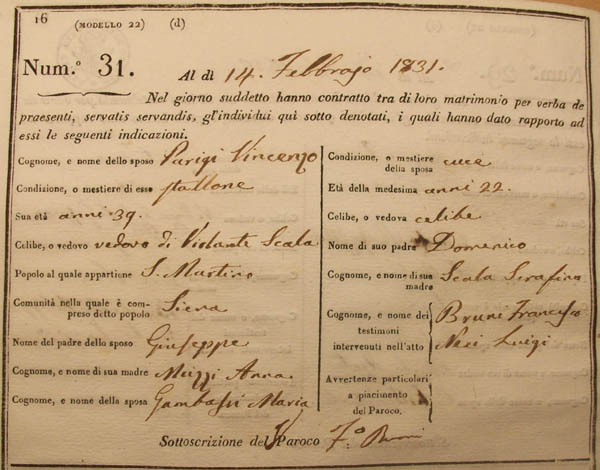 16
(MODELLO 22) (d)
Num.° 31. Al dì 14. Febbrajo 1831.
Nel giorno suddetto hanno contratto tra di loro matrimonio per verba de
praesenti, servatis servandis, gl'individui qui sotto denotati, i quali hanno dato rapporto ad
essi le seguenti indicazioni.
Cognome, e nome dello sposo Parigi Vincenzo
Condizione, o mestiere di esso stallone
Sua età anni 39.
Celibe, o vedovo vedovo di Violante Scala
Popolo al quale appartiene S. Martino
Comunità nella quale è com-
preso detto popolo Siena
Nome del padre dello sposo Giuseppe
Cognome, e nome di sua madre Muzzi Anna
Cognome, e nome della sposa Gambassi Maria
Condizione, o mestiere
della sposa cuce
Età della medesima anni 22.
Celibe, o vedova celibe
Nome di suo padre Domenico
Cognome, e nome di sua
madre Scala Serafina
Cognome, e nome dei
testimoni
intervenuti nell'atto
Bruni Francesco
Neci Luigi
Avvertenze particolari
a piacimento
del Paroco.
Sottoscrizione del Paroco